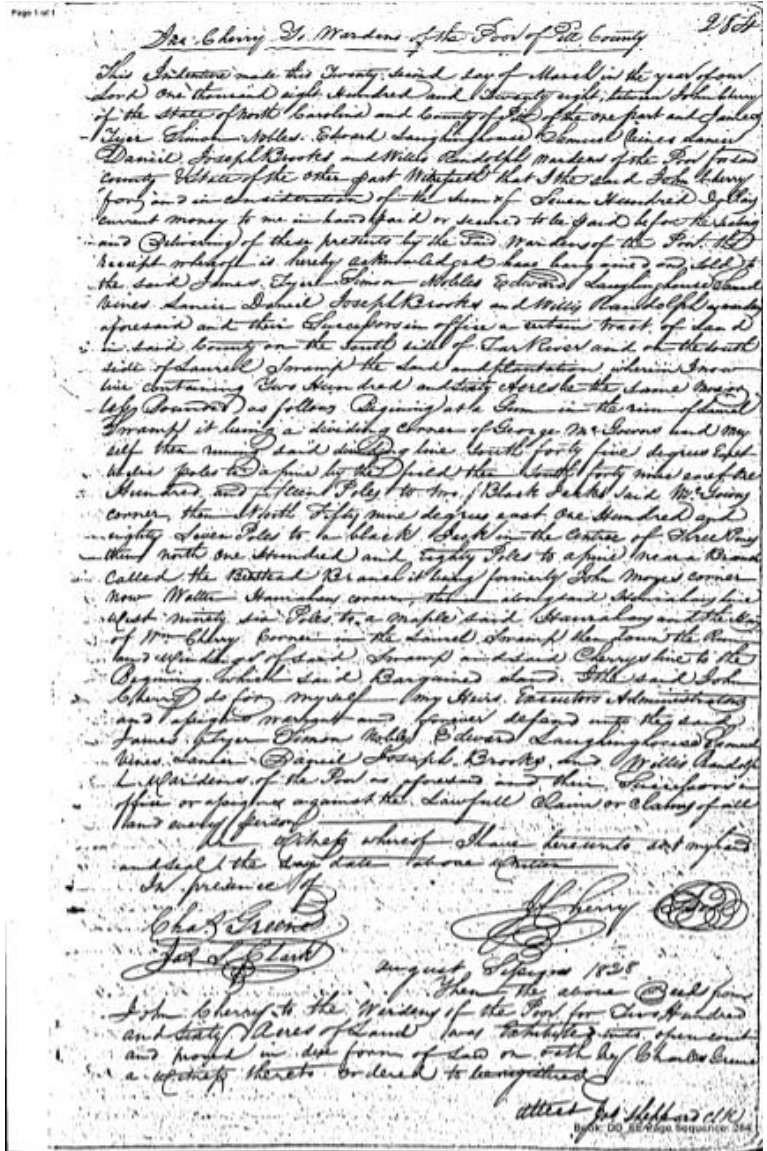 Page 1 of 1
284
Jno. Cherry To Wardens of the Poor of Pitt County
This Indenture made this Twenty second day of March in the year of our
Lord one thousand eight Hundred and Twenty eight, between John Cherry
of the State of North Carolina and County of Pitt of the one part and James
Tyer Simon Nobles Edward Laughinghouse Samuel Vines Lanier
Daniel Joseph Brooks and Willis Randolph Wardens of the Poor for said
county & State of the other part Witnesseth that I the said John Cherry
for and in consideration of the sum of Seven Hundred Dollars
current money to me in hand paid or secured to be paid before the sealing
and Delivering of these presents by the said Wardens of the Poor the
receipt whereof is hereby acknowledged have bargained and sold to
the said James Tyer Simon Nobles Edward Laughinghouse Samuel
Vines Lanier Daniel Joseph Brooks and Willis Randolph
aforesaid and their Successors in office a certain tract of Land
in said County on the South side of Tar River and on the South
side of Laurel Swamp the Land and plantation wherein I now
live containing Two Hundred and Sixty Acres be the same more or
less Bounded as follows Begining at a Gum in the run of Laurel
Swamp it being a dividing corner of George McGowns and my
self then runing said dividing line South forty five degrees East
poles to a pine by the field then South forty nine east One
Hundred and fifteen Poles to Black Jacks said McGowns
corner, then North Fifty nine degrees east One Hundred and
eighty Seven Poles to a black Jack in the centre of Three Pines
then north one Hundred and Eighty Poles to a pine near a Branch
called the Branch it being formerly John Moyes corner
now Walter Hanrahans corner, then along said Hanrahans line
West ninety six Poles to a maple said Hanrahan and
of Wm Cherry Corner in the Laurel Swamp then down the Run
and Windings of said Swamp and said Cherrys line to the
Begining which said Bargained Land I the said John
Cherry do for myself my Heirs Executors Administrators
and assigns warrant and forever defend unto the said
James Tyer Simon Nobles Edward Laughinghouse Samuel
Vines Lanier Daniel Joseph Brooks and Willis Randolph
Wardens of the Poor as aforesaid and their Successors in
office or assignes against the Lawfull Claim or claims of all
and every person
In Witness whereof I have hereunto set my hand
and seal the day date above written
In presence of
J Cherry Seal
Chas Greene
Jas S Clark
august Session 1828
Then the above Deed from
John Cherry to the Wardens of the Poor for Two Hundred
and Sixty Acres of Land was Exhibited into open court
and proved in due form of Law on oath by Charles Greene
a Witness thereto ordered to be registered
attest Jas Sheppard Clk
Page Sequence: 284